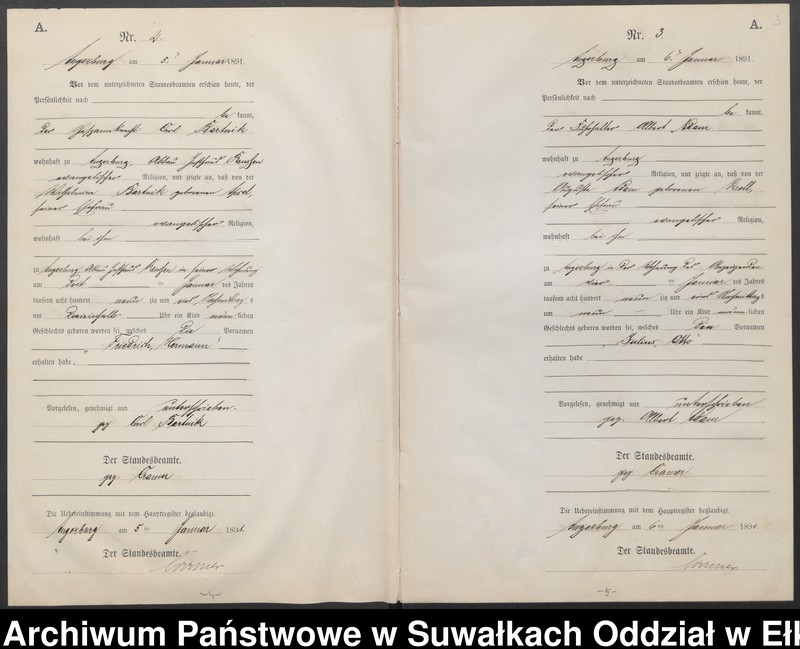 A.
Nr. 2.
Angerburg am 5ten Januar 1891.
Vor dem unterzeichneten Standesbeamten erschien heute, der
Persönlichkeit nach
be kannt,
der Carl Bartnik
wohnhaft zu Angerburg,
evangelischer Religion, und zeigte an, daß von der
Wilhelmine Bartnik geborenen
seiner Ehefrau
evangelischer Religion,
wohnhaft bei ihm
zu Angerburg in seiner Wohnung
am Januar des Jahres
tausend acht hundert neun zig und eins Vormittags
um Uhr ein Kind männlichen
Geschlechts geboren worden sei, welches die Vornamen
"Friedrich, Hermann"
erhalten habe.
Vorgelesen, genehmigt und unterschrieben.
gez. Carl Bartnik
Der Standesbeamte.
gez. Cramer
Die Uebereinstimmung mit dem Hauptregister beglaubigt.
Angerburg am 5ten Januar 1891.
Der Standesbeamte.
Cramer
-4-
3
A.
Nr. 3.
Angerburg am 6ten Januar 1891.
Vor dem unterzeichneten Standesbeamten erschien heute, der
Persönlichkeit nach
be kannt,
der Albert Adam
wohnhaft zu Angerburg
evangelischer Religion, und zeigte an, daß von der
Auguste Adam geborenen Kroll,
seiner Ehefrau
evangelischer Religion,
wohnhaft bei ihm
zu Angerburg in der Wohnung des Anzeigenden
am vier ten Januar des Jahres
tausend acht hundert neun zig und eins
um neun Uhr ein Kind männ lichen
Geschlechts geboren worden sei, welches den Vornamen
"Julius, Otto"
erhalten habe
Vorgelesen, genehmigt und unterschrieben
gez. Albert Adam
Der Standesbeamte.
gez. Cramer
Die Uebereinstimmung mit dem Hauptregister beglaubigt.
Angerburg am 6ten Januar 1891.
Der Standesbeamte.
Cramer
-5-
Archiwum Państwowe w Suwałkach Oddział w Ełk